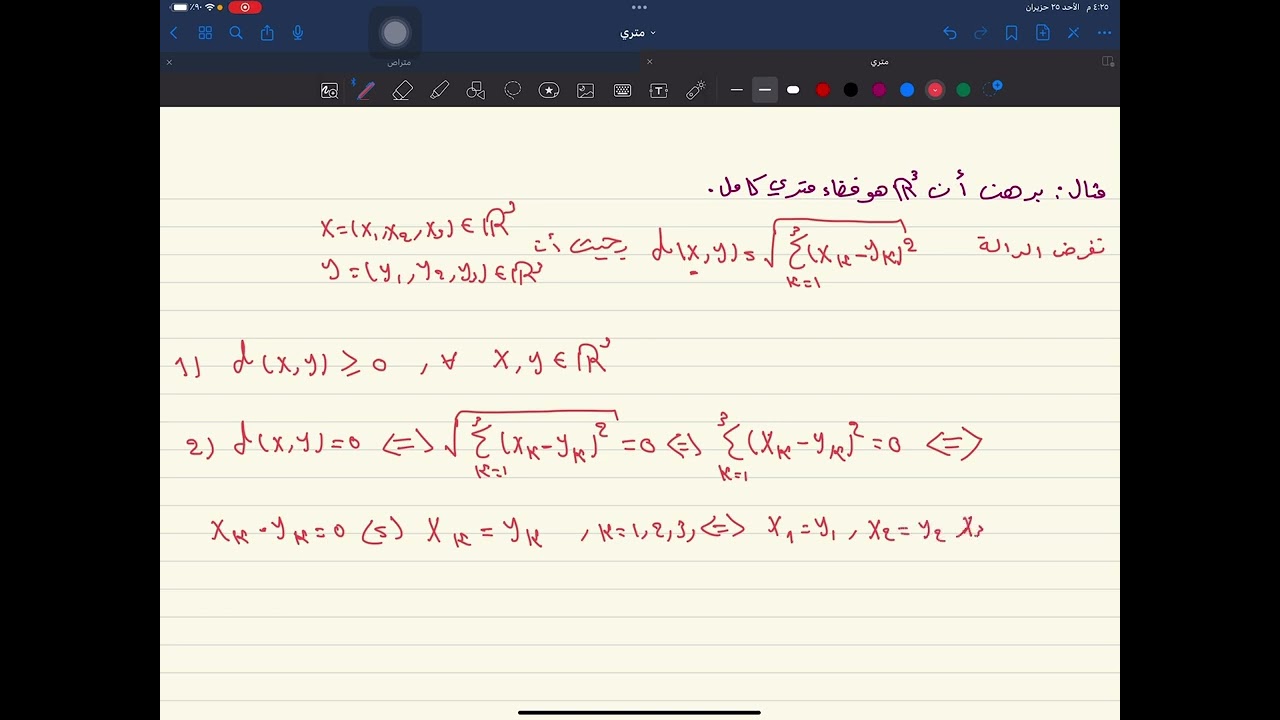 ٪٩٠
٤:٢٥ م الأحد ٢٥ حزيران
متري
متراص
متري
مثال: برهن أن ℝ³ هو فضاء متري كامل.
نفرض الدالة d(x,y)=√(∑_{k=1}^{3}(x_k-y_k)²) بحيث أن x=(x₁,x₂,x₃)∈ℝ³
y=(y₁,y₂,y₃)∈ℝ³
1) d(x,y)≥0 , ∀ x,y∈ℝ³
2) d(x,y)=0 <=> √(∑_{k=1}^{3}(x_k-y_k)²)=0 <=> ∑_{k=1}^{3}(x_k-y_k)²=0 <=>
x_k-y_k=0 <=> x_k=y_k , k=1,2,3, <=> x₁=y₁, x₂=y₂ x₃